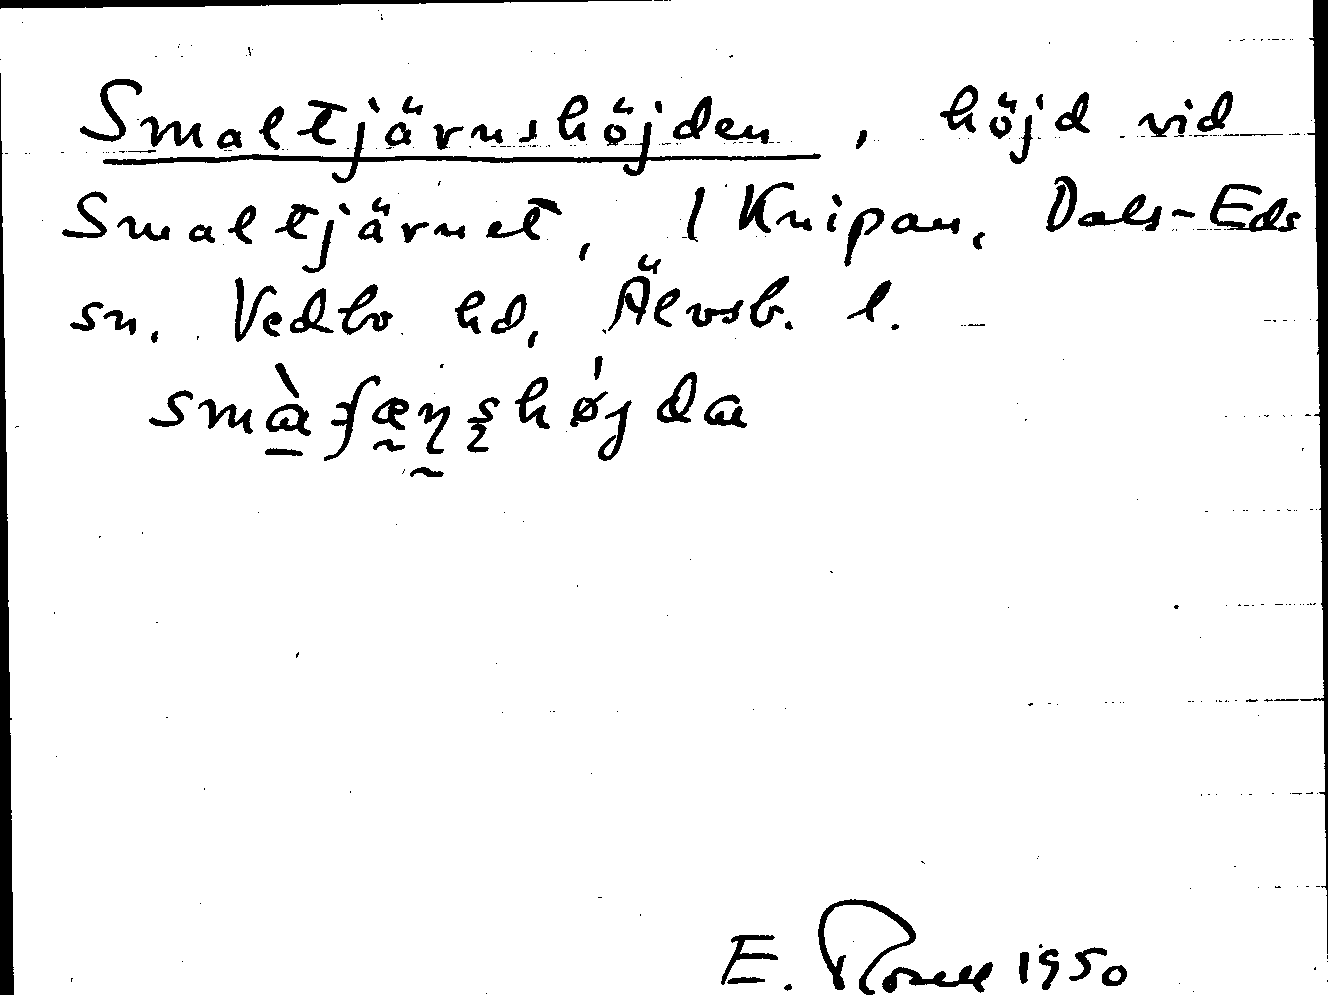 Smaltjärnshöjden, höjd vid
Smaltjärnet, 1 Knipan, Dals-Eds
sn. Vedbo hd, Älvsb. l.
E. Rosell 1950